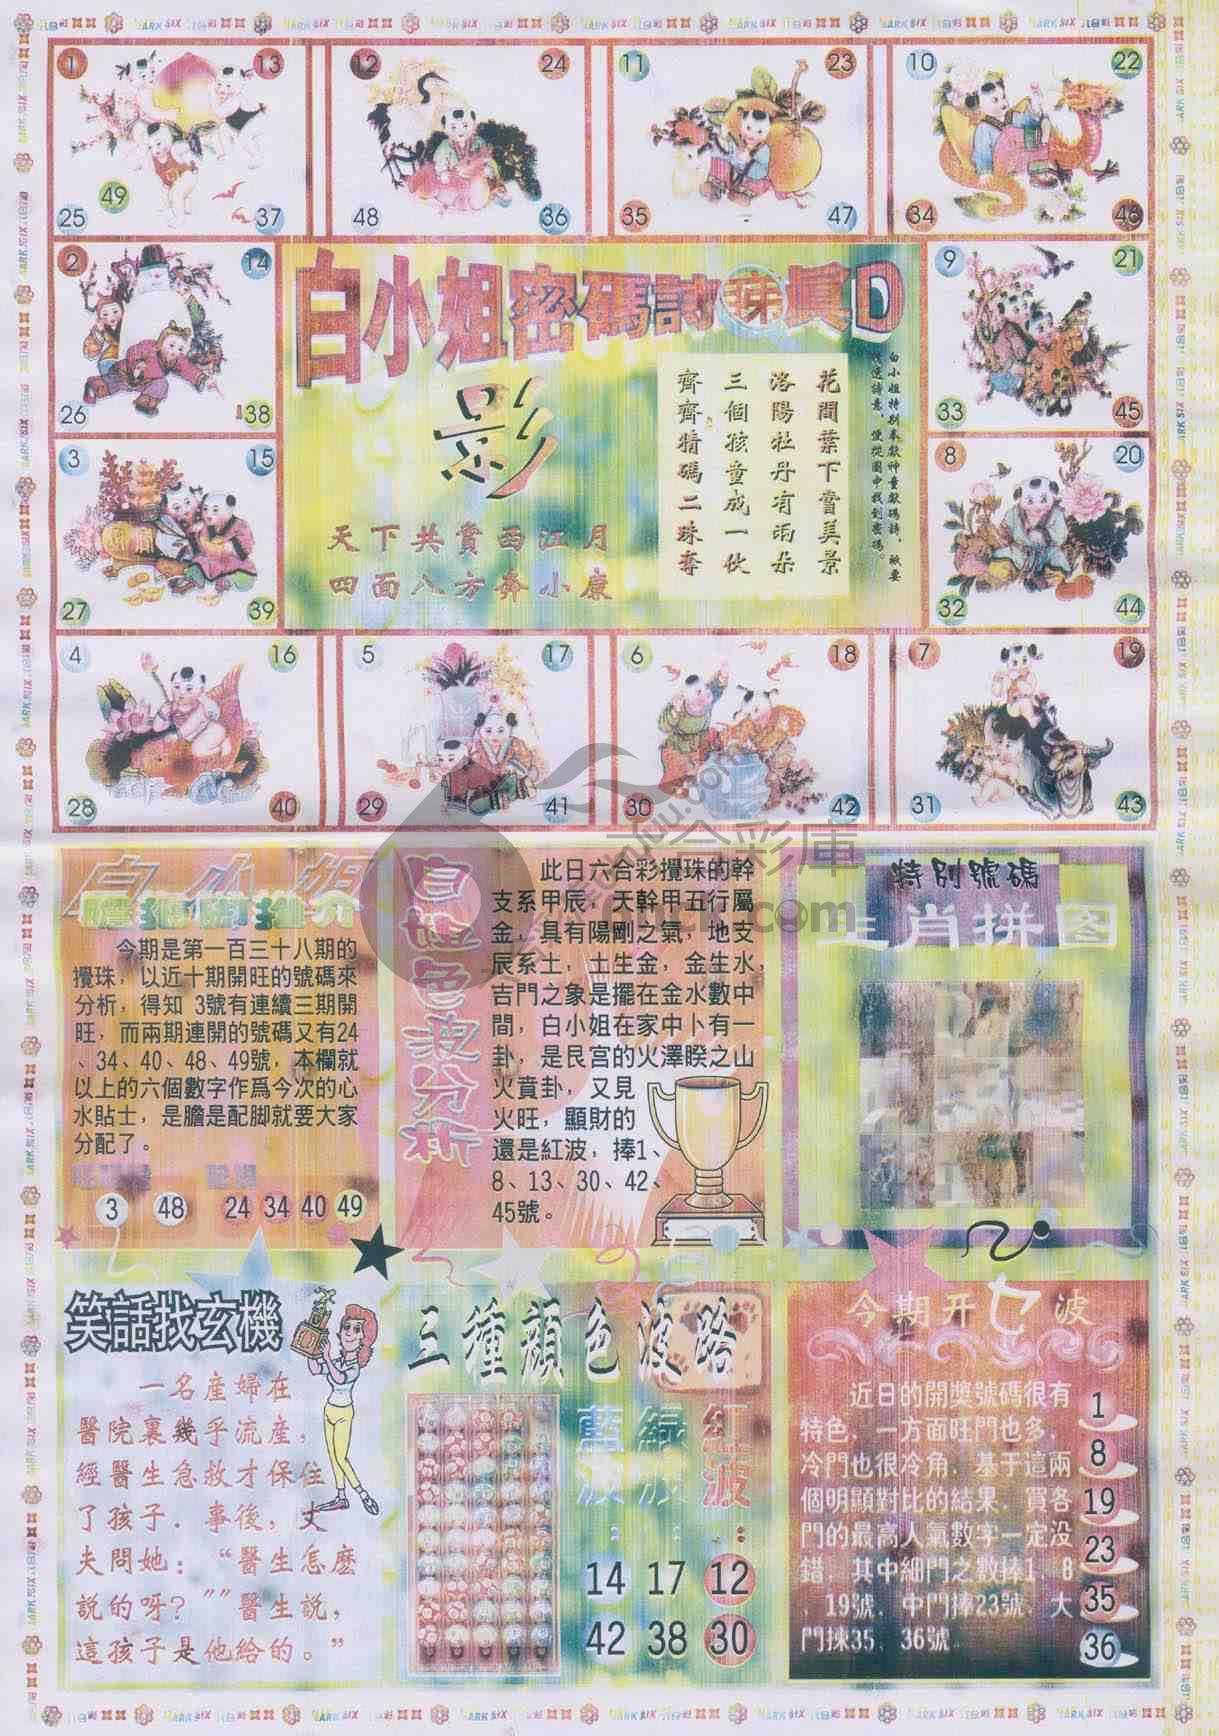 1 13 49 25 37
12 24 48 36
11 23 35 47
10 22 34 46
2 14 26 38
白小姐密碼詩
影
天下共賞西江月
四面八方奔小康
花間葉下嘗美景
洛陽牡丹有兩朵
三個孩童成一伙
齊齊猜碼二珠奪
9 21 33 45
3 15 27 39
8 20 32 44
4 16 28 40
5 17 29 41
6 18 30 42
7 19 31 43
白小姐
今期是第一百三十八期的
攪珠，以近十期開旺的號碼來
分析，得知 3號有連續三期開
旺，而兩期連開的號碼又有24
、34、40、48、49號，本欄就
以上的六個數字作爲今次的心
水貼士，是膽是配脚就要大家
分配了。
3 48 24 34 40 49
白姐色波分析
此日六合彩攪珠的幹
支系甲辰，天幹甲五行屬
金，具有陽剛之氣，地支
辰系土，土生金，金生水，
吉門之象是擺在金水數中
間，白小姐在家中卜有一
卦，是艮宫的火澤睽之山
火賁卦，又見
火旺，顯財的
還是紅波，捧1、
8、13、30、42、
45號。
特別號碼
生肖拼图
笑話找玄機
一名産婦在
醫院裏幾乎流産，
經醫生急救才保住
了孩子．事後，丈
夫問她：“醫生怎麽
說的呀？”“醫生說，
這孩子是他給的。”
三種顔色波路
藍波：14 42
緑波：17 38
紅波：12 30
今期开七波
近日的開獎號碼很有
特色，一方面旺門也多，
冷門也很冷角，基于這兩
個明顯對比的結果，買各
門的最高人氣數字一定没
錯，其中細門之數捧1、8
、19號，中門捧23號，大
門揀35、36號
1
8
19
23
35
36
六合彩庫